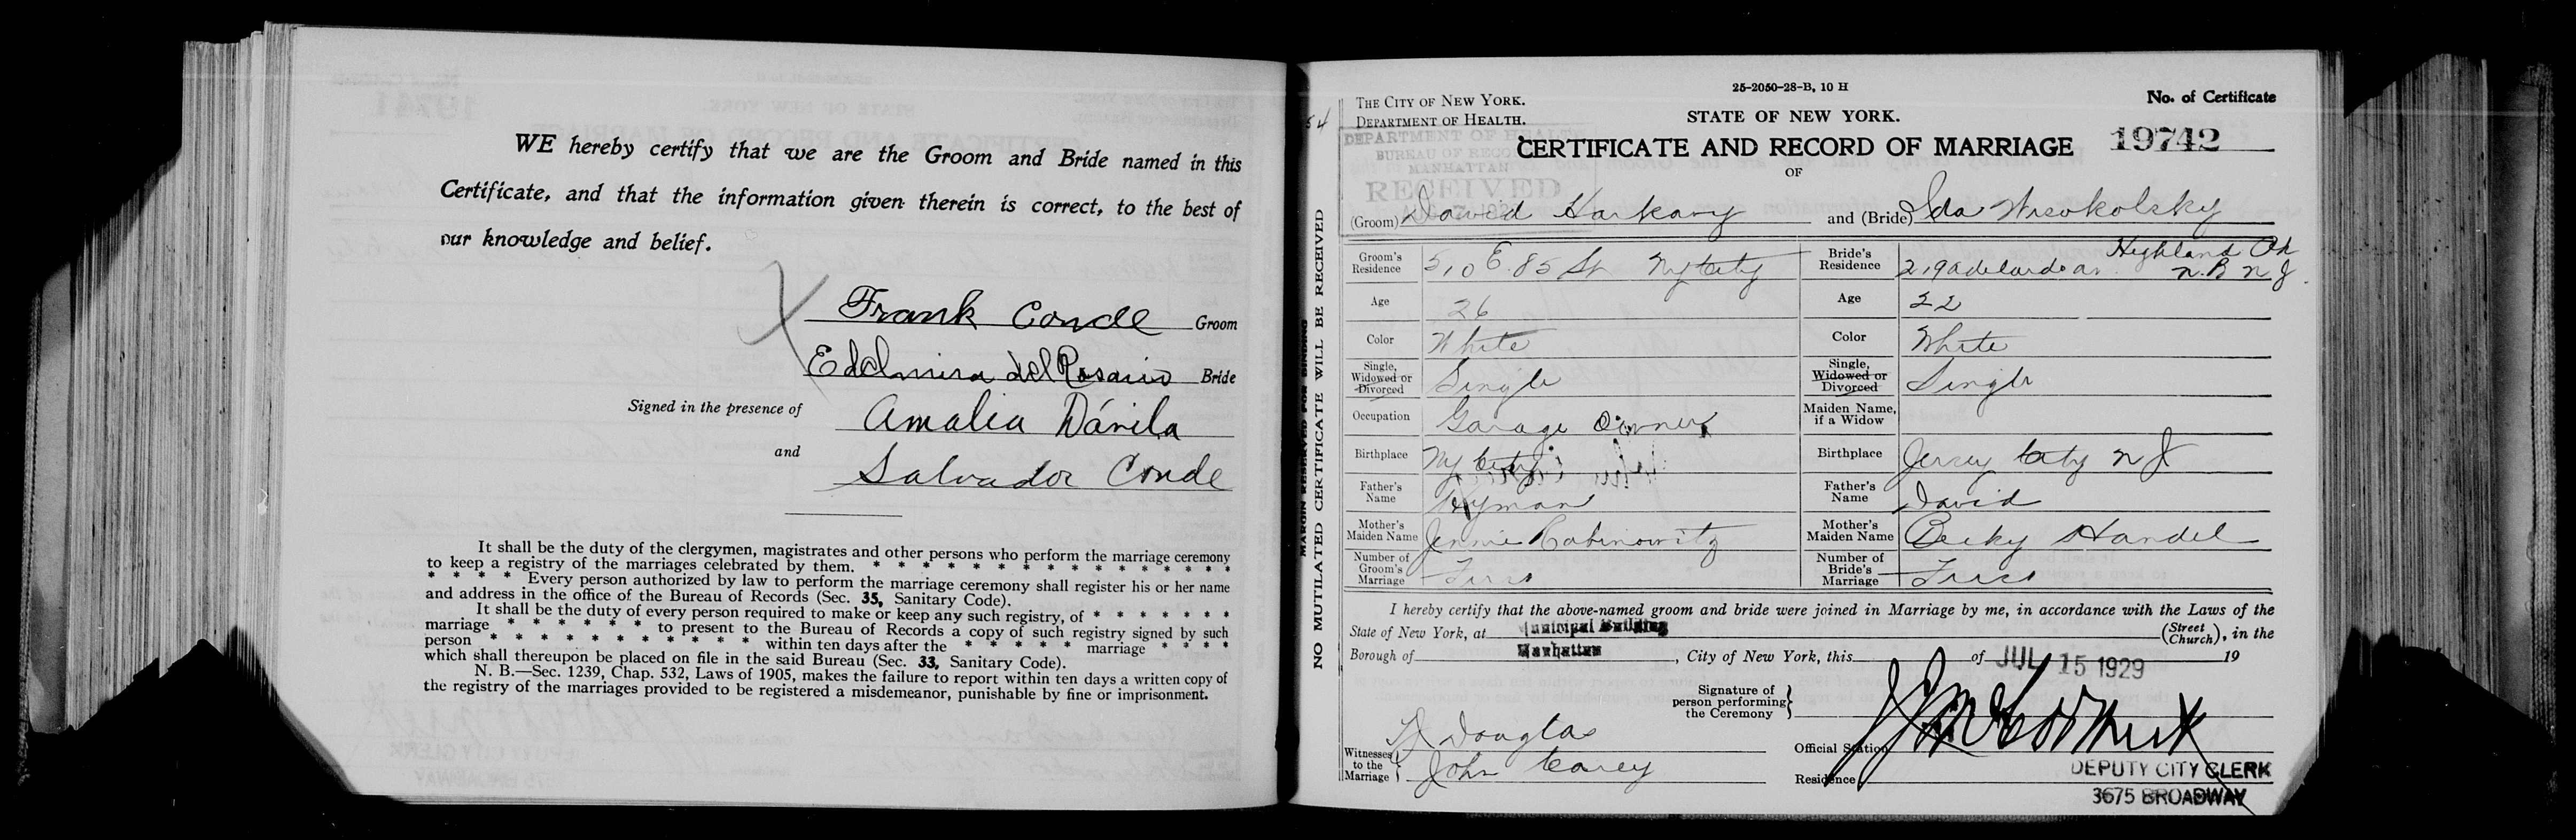 WE hereby certify that we are the Groom and Bride named in this
Certificate, and that the information given therein is correct, to the best of
our knowledge and belief.
Frank Conde Groom
Edelmira del Rosario Bride
Signed in the presence of Amalia Dávila
and
Salvador Conde
It shall be the duty of the clergymen, magistrates and other persons who perform the marriage ceremony
to keep a registry of the marriages celebrated by them. * * * * * * * * * * * * * * *
* * * * Every person authorized by law to perform the marriage ceremony shall register his or her name
and address in the office of the Bureau of Records (Sec. 35, Sanitary Code).
It shall be the duty of every person required to make or keep any such registry, of * * * * * * *
marriage * * * * * * * to present to the Bureau of Records a copy of such registry signed by such
person * * * * * * * * * * * within ten days after the * * * * * marriage * * * *
which shall thereupon be placed on file in the said Bureau (Sec. 33, Sanitary Code).
N. B.—Sec. 1239, Chap. 532, Laws of 1905, makes the failure to report within ten days a written copy of
the registry of the marriages provided to be registered a misdemeanor, punishable by fine or imprisonment.
MARGIN RESERVED FOR BINDING
NO MUTILATED CERTIFICATE WILL BE RECEIVED
25-2050-28-B, 10 H
THE CITY OF NEW YORK.
DEPARTMENT OF HEALTH.
STATE OF NEW YORK.
No. of Certificate
19742
CERTIFICATE AND RECORD OF MARRIAGE
OF
DEPARTMENT OF HEALTH
BUREAU OF RECORDS
MANHATTAN
RECEIVED
(Groom) David Harkavy and (Bride) Ida Wisokolsky
Groom's Residence 510 E. 85 St Ny City
Bride's Residence 219 Adelaide av. Highland Pk N.B N J.
Age 26
Age 22
Color White
Color White
Single, Widowed or Divorced Single
Single, Widowed or Divorced Single
Occupation Garage Owner
Maiden Name, if a Widow
Birthplace Ny City
Birthplace Jersey City N J
Father's Name Hyman
Father's Name David
Mother's Maiden Name Jennie Rabinowitz
Mother's Maiden Name Becky Handel
Number of Groom's Marriage First
Number of Bride's Marriage First
I hereby certify that the above-named groom and bride were joined in Marriage by me, in accordance with the Laws of the
State of New York, at Municipal Building (Street Church), in the
Borough of Manhattan, City of New York, this of JUL 15 1929 19
Signature of person performing the Ceremony
Witnesses to the Marriage
Douglas
John Carey
Official Station
DEPUTY CITY CLERK
Residence
3675 BROADWAY